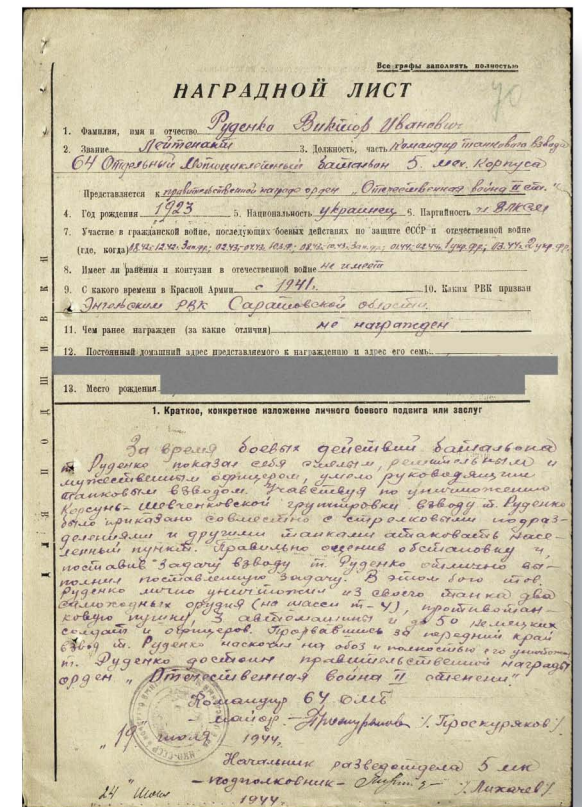 Все графы заполнять полностью
70
НАГРАДНОЙ ЛИСТ
1. Фамилия, имя и отчество Руденко Виктор Иванович
2. Звание Лейтенант 3. Должность, часть командир танкового взвода
64 Отдельный Мотоциклетный батальон 5 мех. Корпуса
Представляется к правительственной награде орден „Отечественная война II ст."
4. Год рождения 1923 5. Национальность украинец 6. Партийность чл ВЛКСМ
7. Участие в гражданской войне, последующих боевых действиях по защите СССР и отечественной войне
(где, когда)
8. Имеет ли ранения и контузии в отечественной войне не имеет
9. С какого времени в Красной Армии с 1941. 10. Каким РВК призван
Энгельским РВК Саратовской области.
11. Чем ранее награжден (за какие отличия) не награжден
12. Постоянный домашний адрес представляемого к награждению и адрес его семьи
13. Место рождения
1. Краткое, конкретное изложение личного боевого подвига или заслуг
За время боевых действий батальона
т. Руденко показал себя смелым, решительным и
мужественным офицером, умело руководящим
танковым взводом. Участвуя по уничтожению
Корсунь-Шевченковской группировки взводу т. Руденко
было приказано совместно с стрелковыми подраз-
делениями и другими танками атаковать насе-
ленный пункт. Правильно оценив обстановку и,
поставив задачу взводу т. Руденко отлично вы-
полнил поставленную задачу. В этом бою тов.
Руденко лично уничтожил из своего танка два
самоходных орудия (на шасси т-4), противотан-
ковую пушку, 3 автомашины и до 50 немецких
солдат и офицеров. Прорвавшись за передний край
взвод т. Руденко наскочил на обоз и полностью его уничтожил
т. Руденко достоин правительственной награды
орден „Отечественная война II степени".
Командир 64 ОМБ
майор - /Проскуряков/
„19" июля 1944г.
Начальник разведотдела 5 мк
-подполковник- /Лихачев/
24 Июля 1944г.